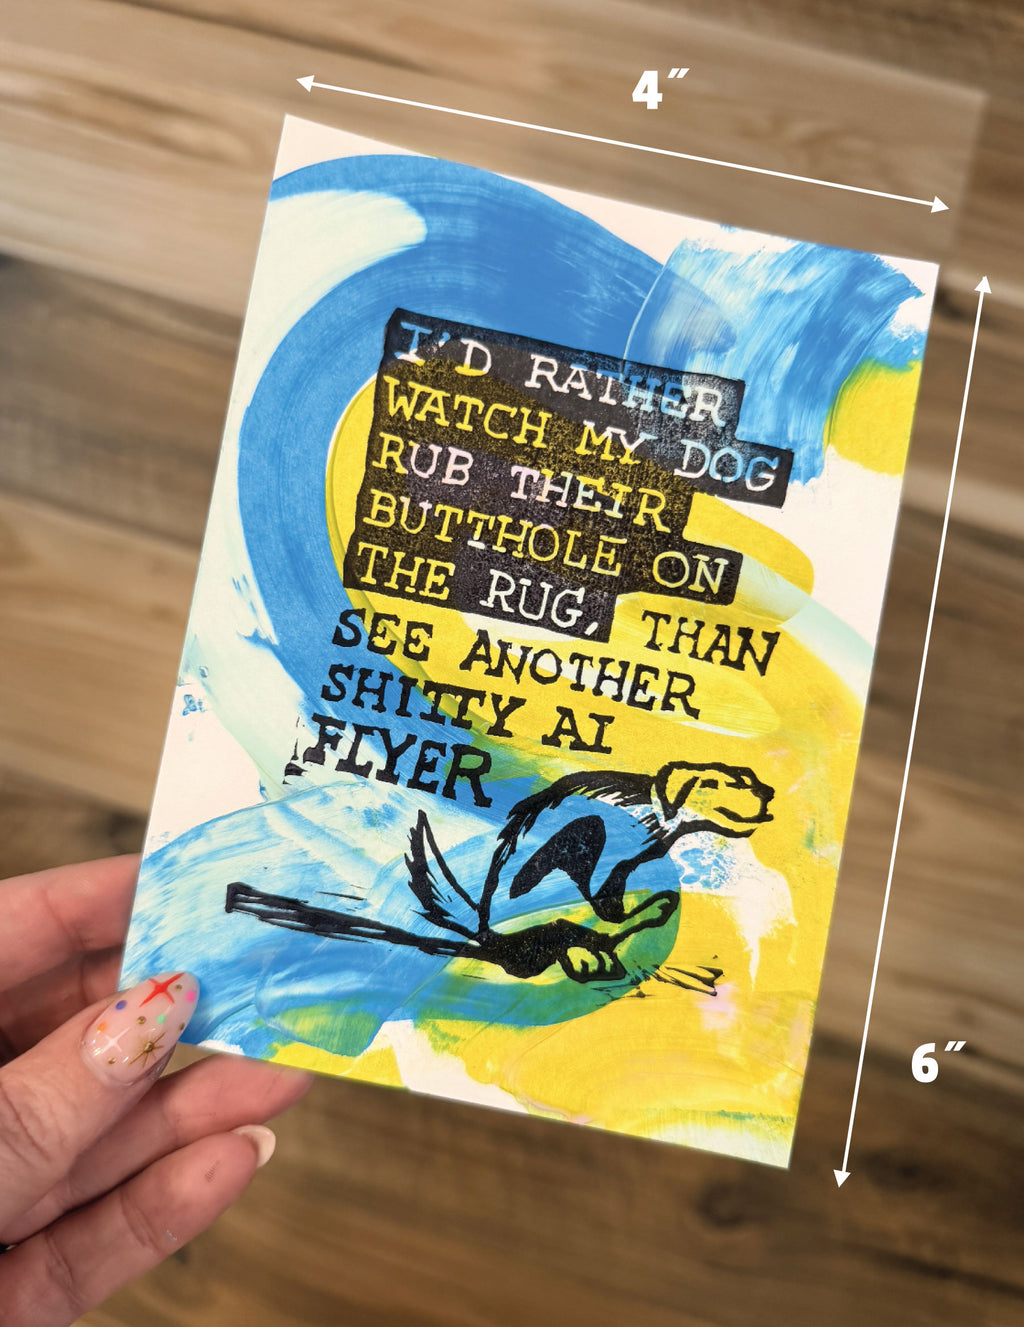 4″
I'D RATHER
WATCH MY DOG
RUB THEIR
BUTTHOLE ON
THE RUG, THAN
SEE ANOTHER
SHITTY AI
FLYER
6″